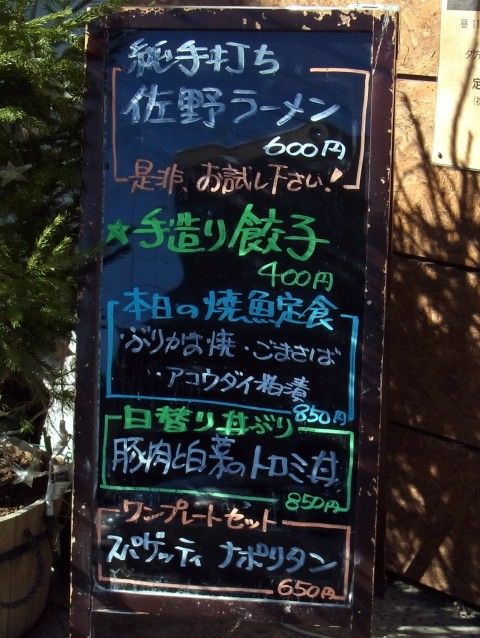 純手打ち
佐野ラーメン
600円
是非、お試し下さい!
★手造り餃子
400円
本日の焼魚定食
・ぶりかま焼・ごまさば
・アコウダイ粕漬
850円
日替り丼ぶり
豚肉と白菜のトロミ丼
850円
ワンプレートセット
スパゲッティ ナポリタン
650円